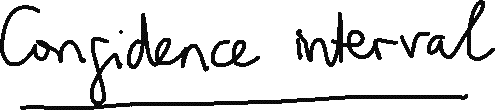 Confidence interval